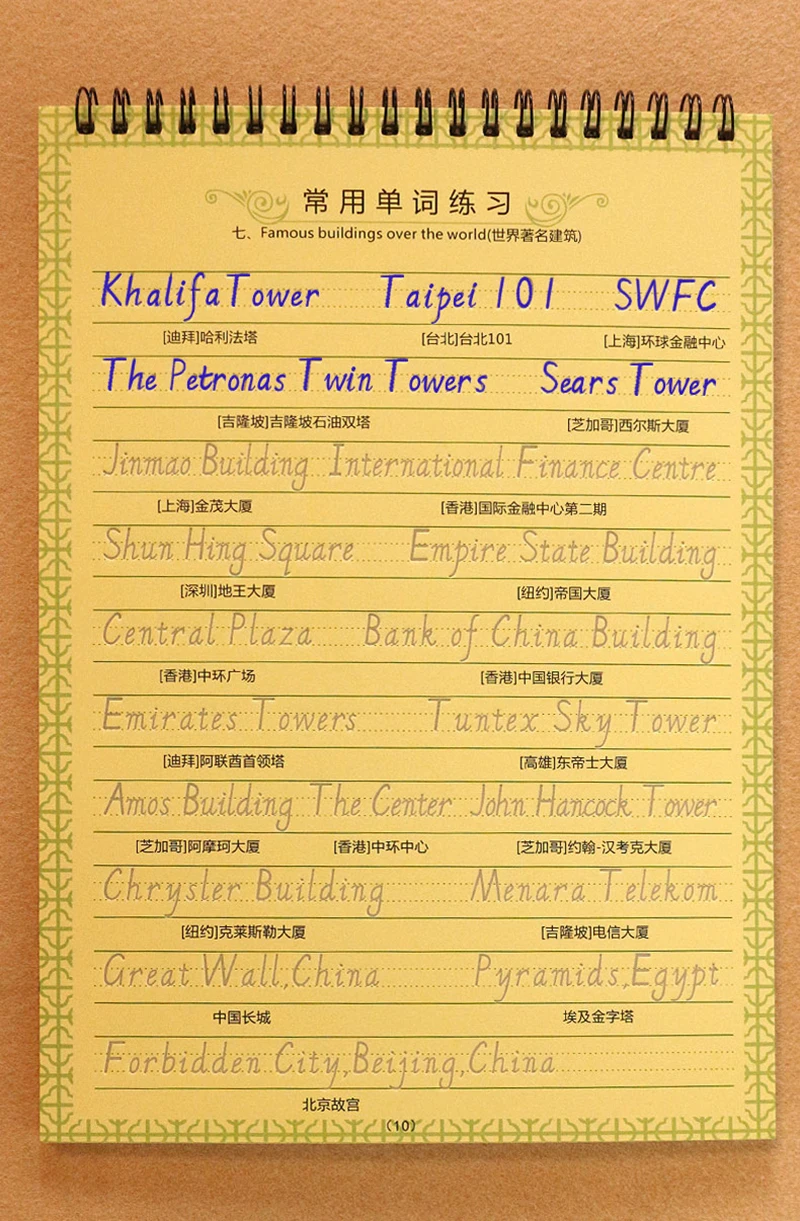 常用单词练习
七、Famous buildings over the world(世界著名建筑)
Khalifa Tower Taipei 101 SWFC
[迪拜]哈利法塔 [台北]台北101 [上海]环球金融中心
The Petronas Twin Towers Sears Tower
[吉隆坡]吉隆坡石油双塔 [芝加哥]西尔斯大厦
Jinmao Building International Finance Centre
[上海]金茂大厦 [香港]国际金融中心第二期
Shun Hing Square Empire State Building
[深圳]地王大厦 [纽约]帝国大厦
Central Plaza Bank of China Building
[香港]中环广场 [香港]中国银行大厦
Emirates Towers Tuntex Sky Tower
[迪拜]阿联酋首领塔 [高雄]东帝士大厦
Amos Building The Center John Hancock Tower
[芝加哥]阿摩珂大厦 [香港]中环中心 [芝加哥]约翰-汉考克大厦
Chryster Building Menara Telekom
[纽约]克莱斯勒大厦 [吉隆坡]电信大厦
Great Wall,China Pyramids,Egypt
中国长城 埃及金字塔
Forbidden City,Beijing,China
北京故宫
(10)